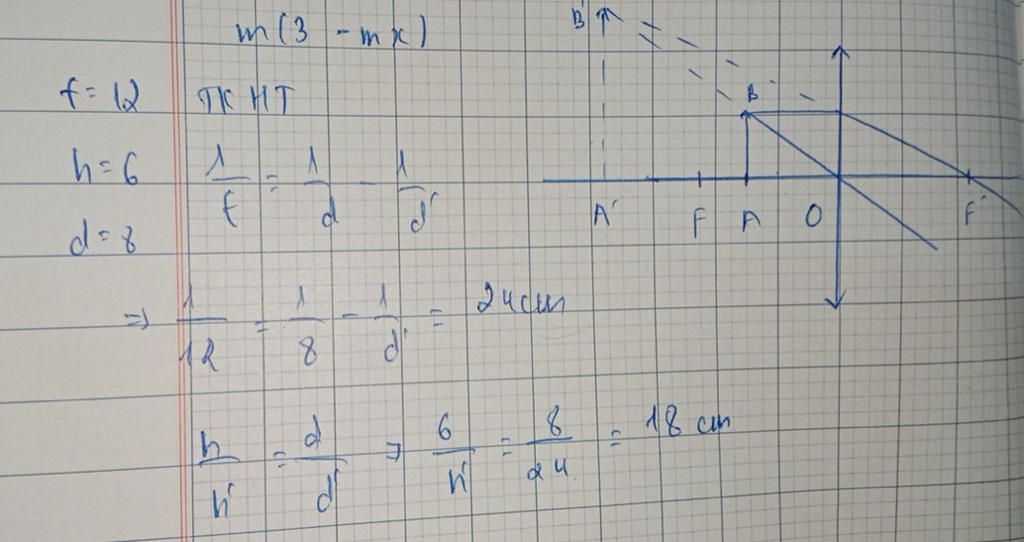 m(3 - mx)
f = 12 TKHT
h = 6 1/f = 1/d - 1/d'
d = 8
=> 1/12 = 1/8 - 1/d' = 24cm
h/h' = d/d' => 6/h' = 8/24 = 18 cm
B'
B
A' F A O F'